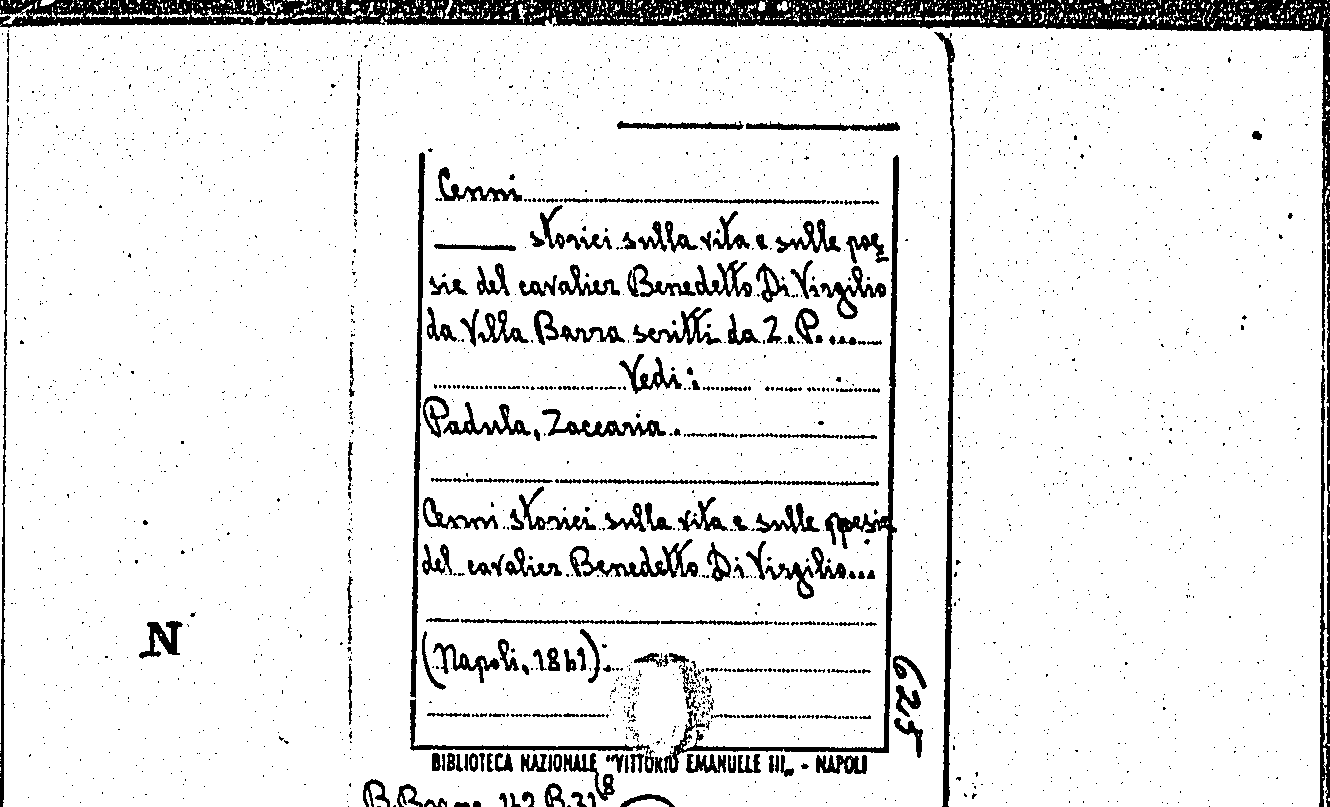 Cenni
storici sulla vita e sulle poe
sie del cavalier Benedetto Di Virgilio
da Villa Barra scritti da Z. P....
Vedi:
Padula, Zaccaria.
Cenni storici sulla vita e sulle poesie
del cavalier Benedetto Di Virgilio...
N
(Napoli, 1861).
625
BIBLIOTECA NAZIONALE "VITTORIO EMANUELE III„ - NAPOLI
(8